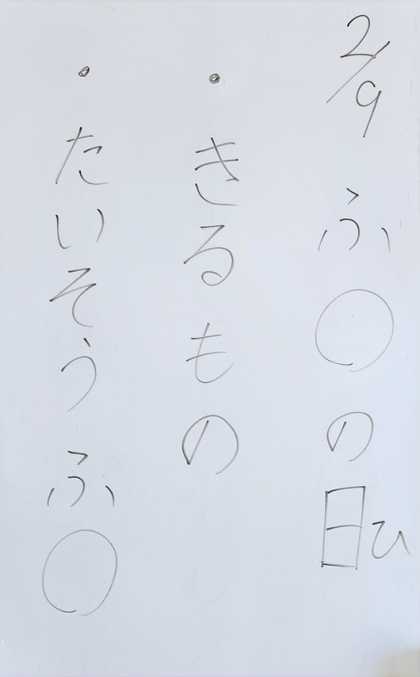 2/9 ふ〇の日ひ
・きるもの
・たいそうふ〇